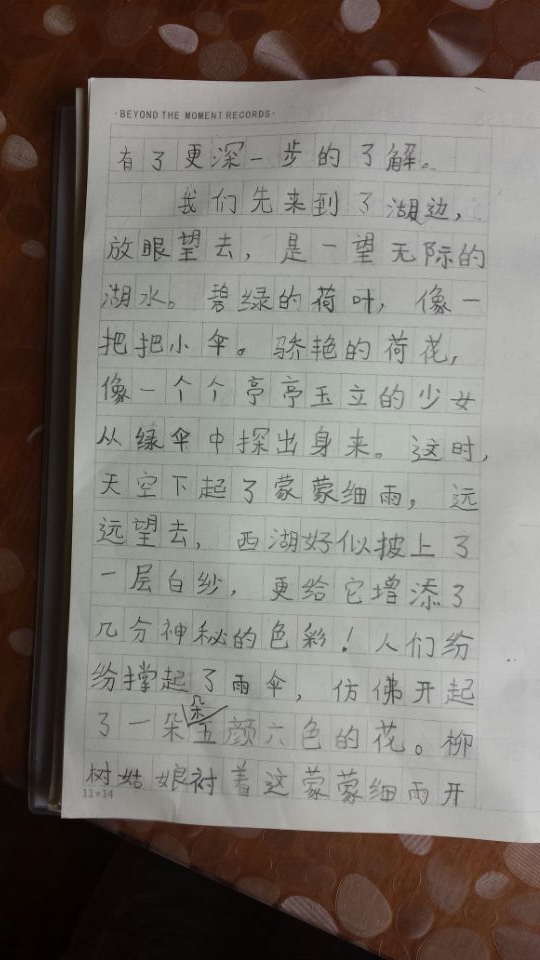 ·BEYOND THE MOMENT RECORDS·
有了更深一步的了解。
我们先来到了湖边，
放眼望去，是一望无际的
湖水。碧绿的荷叶，像一
把把小伞。骄艳的荷花，
像一个个亭亭玉立的少女
从绿伞中探出身来。这时，
天空下起了蒙蒙细雨，远
远望去，西湖好似披上了
一层白纱，更给它增添了
几分神秘的色彩！人们纷
纷撑起了雨伞，仿佛开起
了一朵朵五颜六色的花。柳
树姑娘衬着这蒙蒙细雨开
11×14